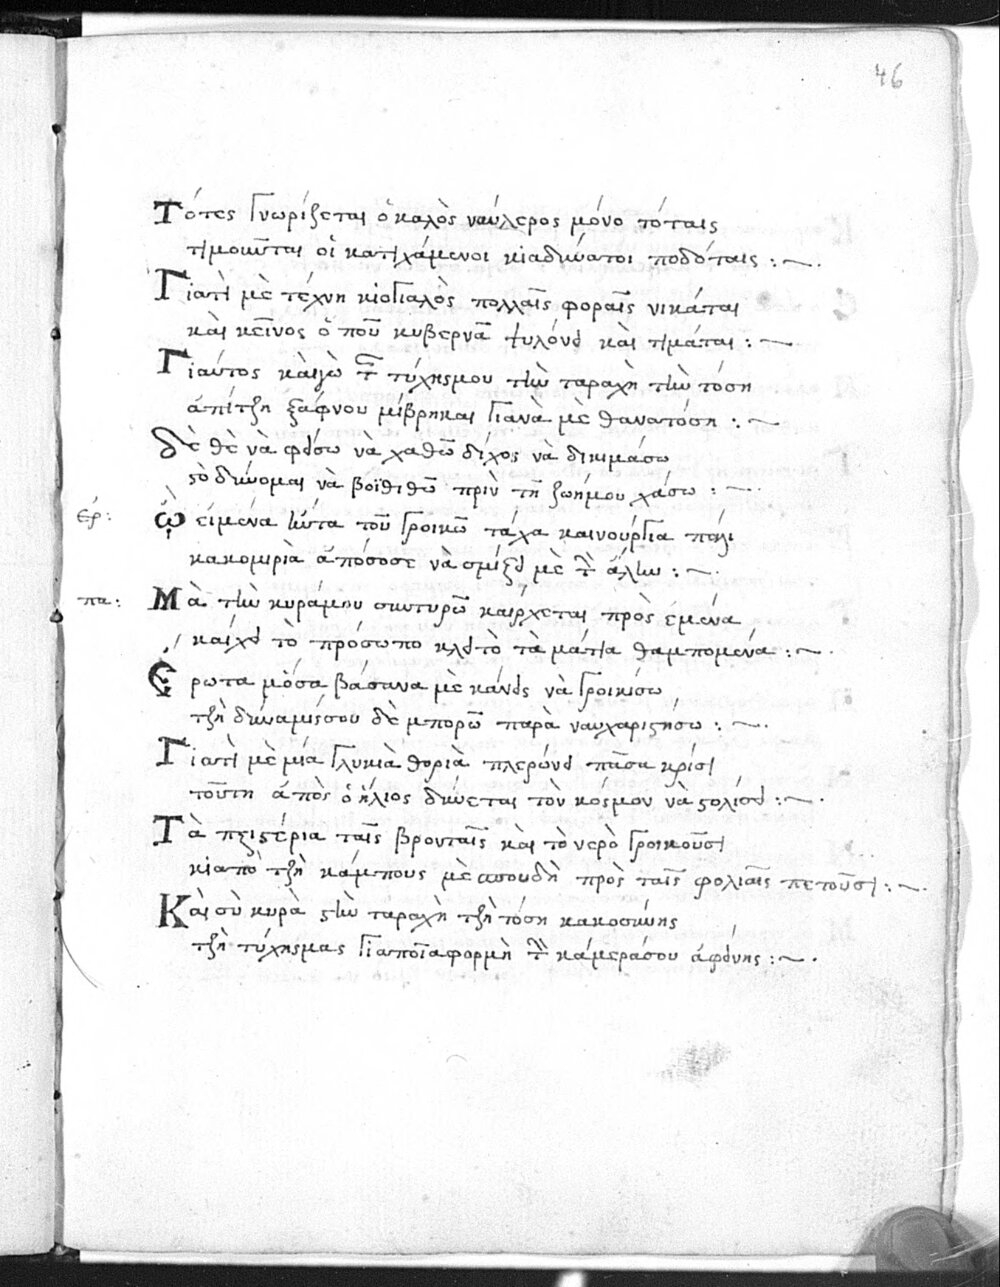 46
Τότες γνωρίζεται ὁ καλὸς ναύκλερος μόνο τόταις
τιμοῦνται οἱ κατιχάμενοι κι ἀδικιώατοι ποδόταις :~
Γιατὶ μὲ τέχνη κι ὁ γιαλὸς πολλαῖς φοραῖς νικάται
καὶ κεῖνος ὁποῦ κυβερνᾶ ψυλόνει καὶ τιμάται :~
Γιαύτος καὶ γὼ τῆς τύχης μου τὴν ταραχὴ τὴν τόση
ἀπίτζη ξάφνου μίβρηκαι γιανὰ μὲ θανατόση :~
δὲ θὲ νὰ φύσω νὰ χαθῶ δίχος νὰ δικιμάσω
νὰ βοϊθιθῶ πρὶν τὴ ζωήμου χάσω :~
ἐρ: ὢ εἰμένα τοῦ γροικῶ τάχα καινούργια πάλι
κακομιριὰ ἀπόσοσε νὰ σμίξει μὲ τὴν ἄλλην :~
πα: Μὰ τὴν κυράμου συντυρῶ καὶ ἔρχεται πρὸς ἐμένα
καίχει τὸ πρόσωπο κλειτὸ τὰ μάτια θαμπομένα :~
Ἔρωτα μόσα βάσανα μὲ κάνεις νὰ γροικίσω
τζὴ δύναμίς σου δὲ μπορῶ παρὰ ναὐχαριστήσω :~
Γιατὶ μὲ μιὰ γλυκιὰ θοριὰ πλερώνει πᾶσα κρίσι
τούτη ἀπὸς ὁ ἥλιος δύνεται τὸν κόσμον νὰ στολίσει :~
Τὰ πξιστέρια ταῖς βρονταῖς καὶ τὸ νερὸ γροικοῦσι
κι ἀπὸ τζὴ κάμπους μὲ σπουδὴ πρὸς ταῖς φολιαῖς πετοῦσι :~
Καὶ σὺ κυρὰ στὴν ταραχὴ τζὴ τόση κακοσύνης
τζὴ τύχης μας γιὰ ποία φορμὴ τὴν κάμεράσου ἀφίνης :~